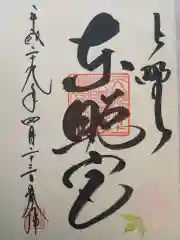 上野
東照宮
平成二十九年四月二十三日